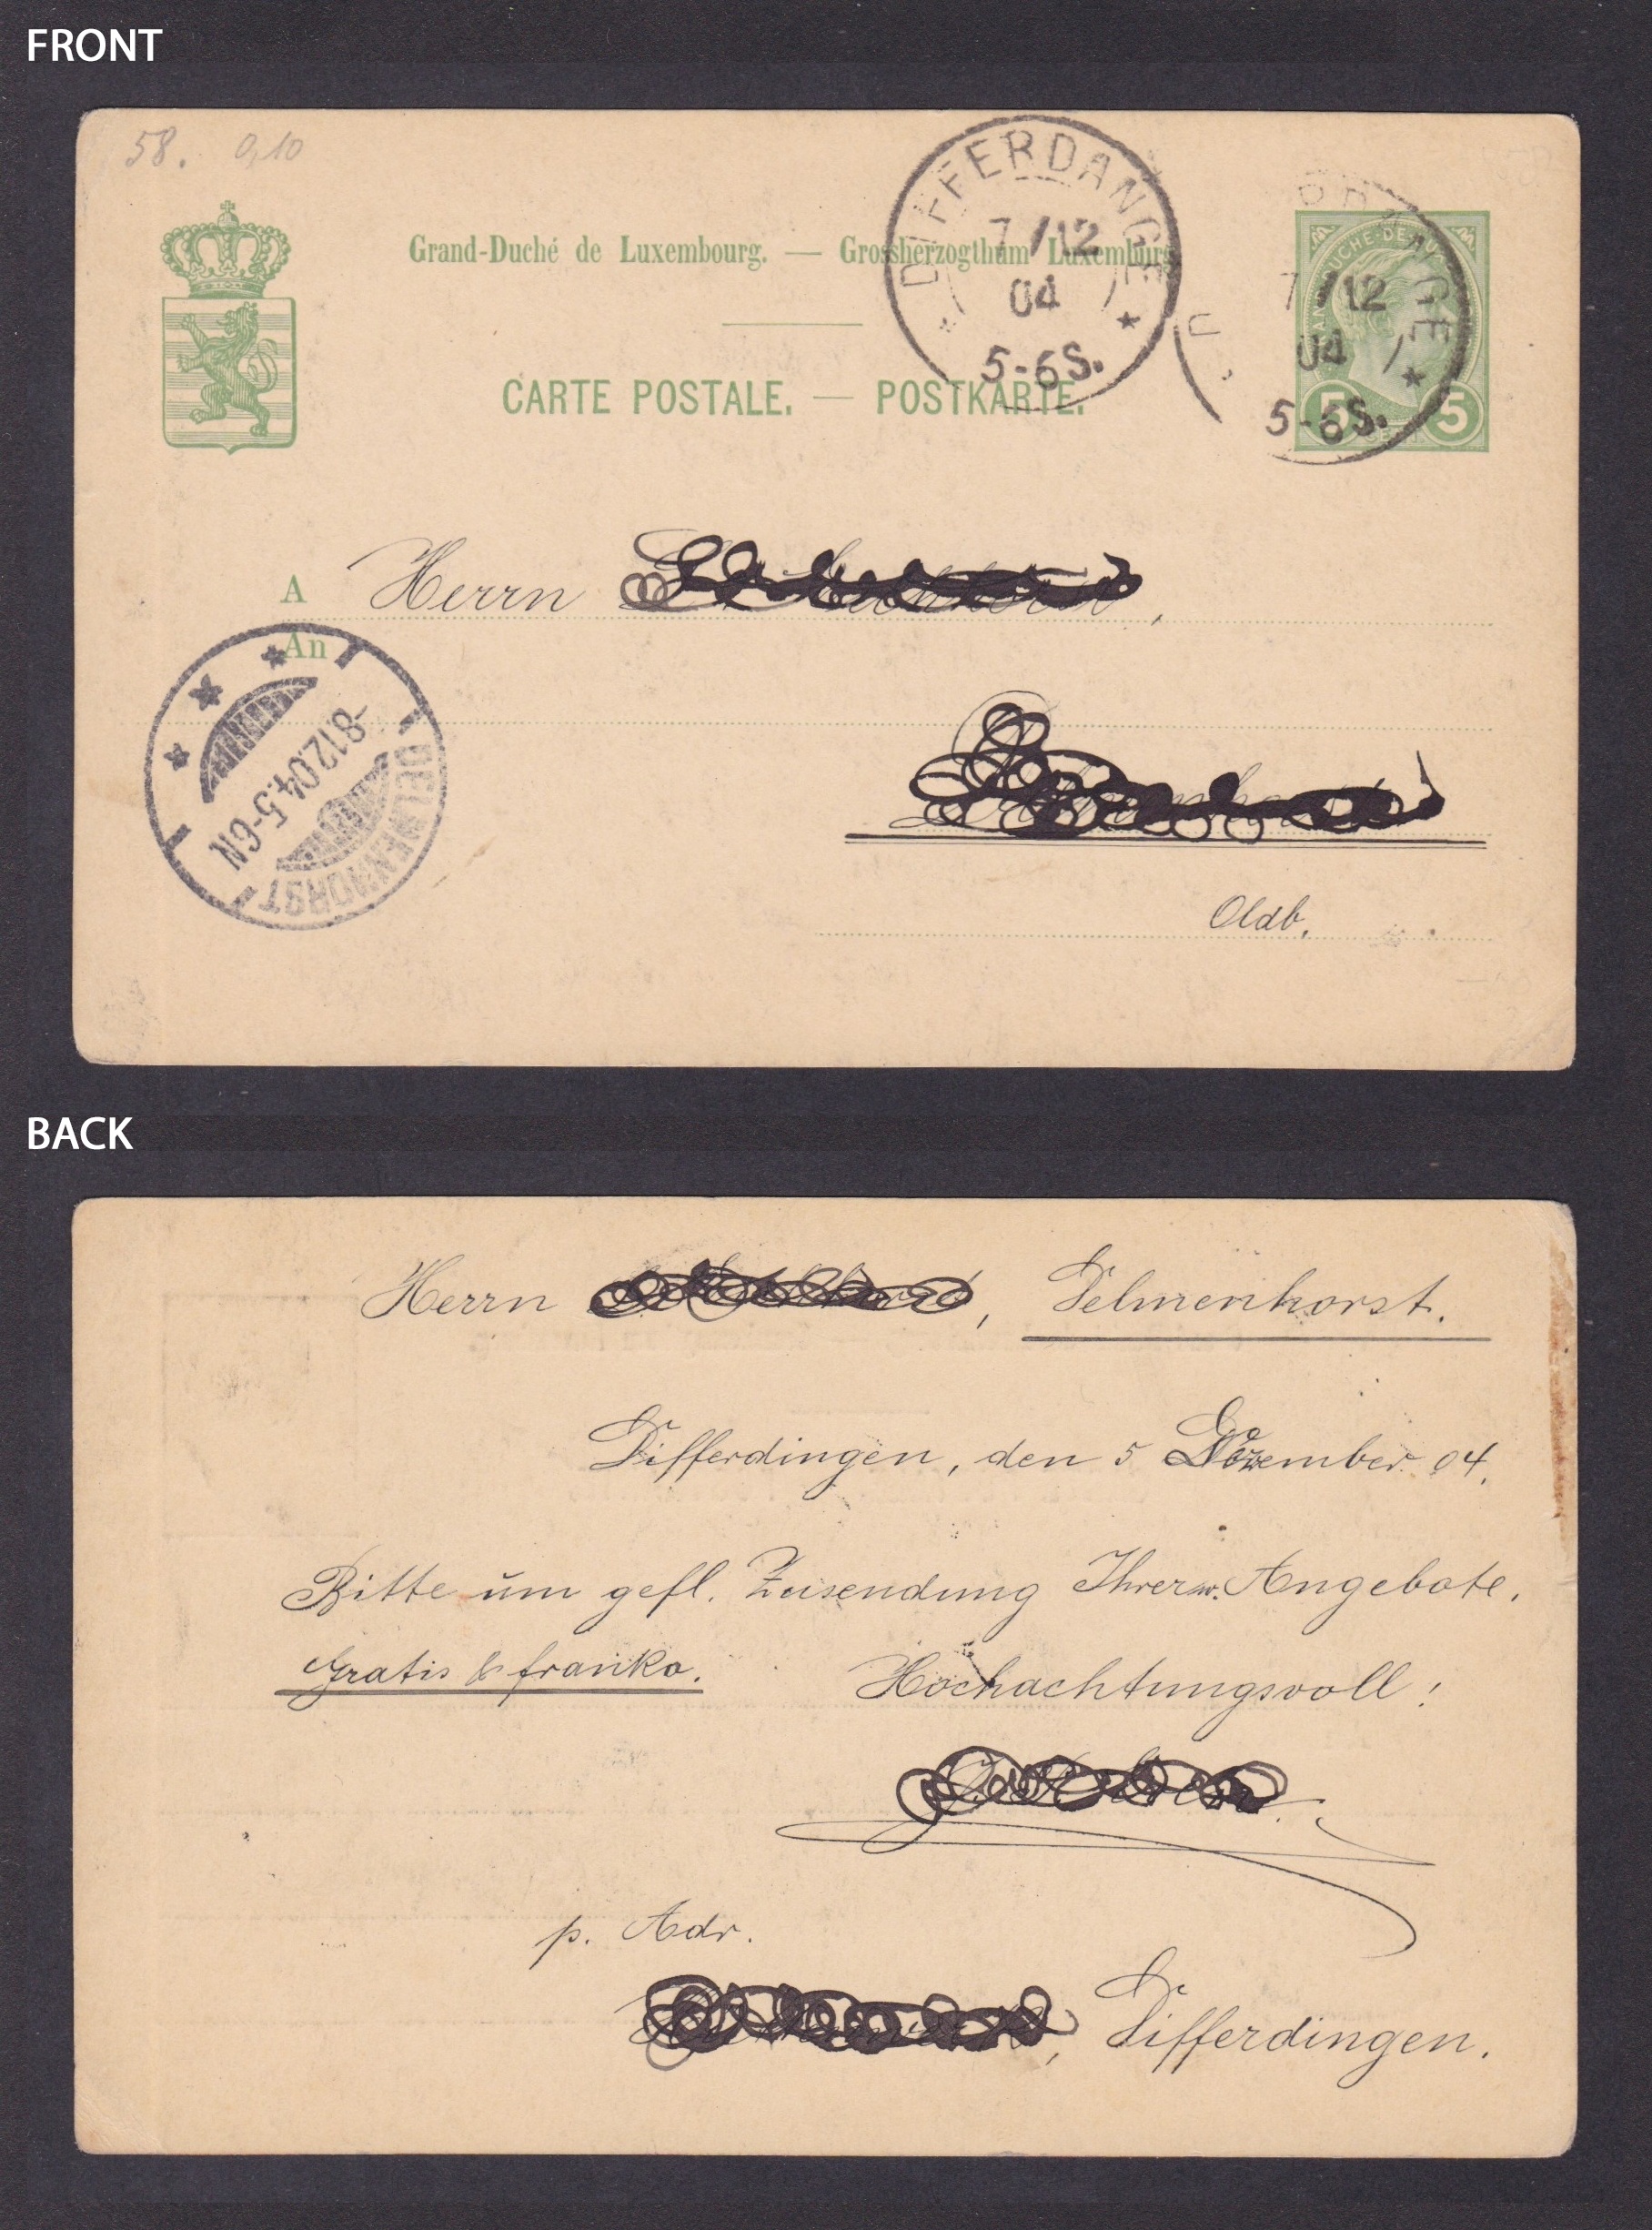 FRONT
58. 0,10
DIFFERDANGE
7/12
04
5-6S.
Grand-Duché de Luxembourg. — Grossherzogthum Luxemburg
CARTE POSTALE. — POSTKARTE.
7/12
04
5-6S.
5 5
A Herrn
An
DELMENHORST
-8.12.04.5-6N
Oldb.
BACK
Herrn , Delmenhorst.
Differdingen, den 5 Dezember 04.
Bitte um gefl. Zusendung Ihrer w. Angebote.
Gratis & franko. Hochachtungsvoll!
p. Adr.
, Differdingen.